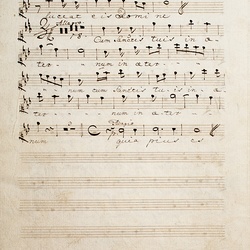 luceat eis Domine
Allo
78.
Cum Sanctis tuis in a
ter - num in aeter -
num cum Sanctis tuis in ae
ter - num in aeter -
Adagio
num quia pius es